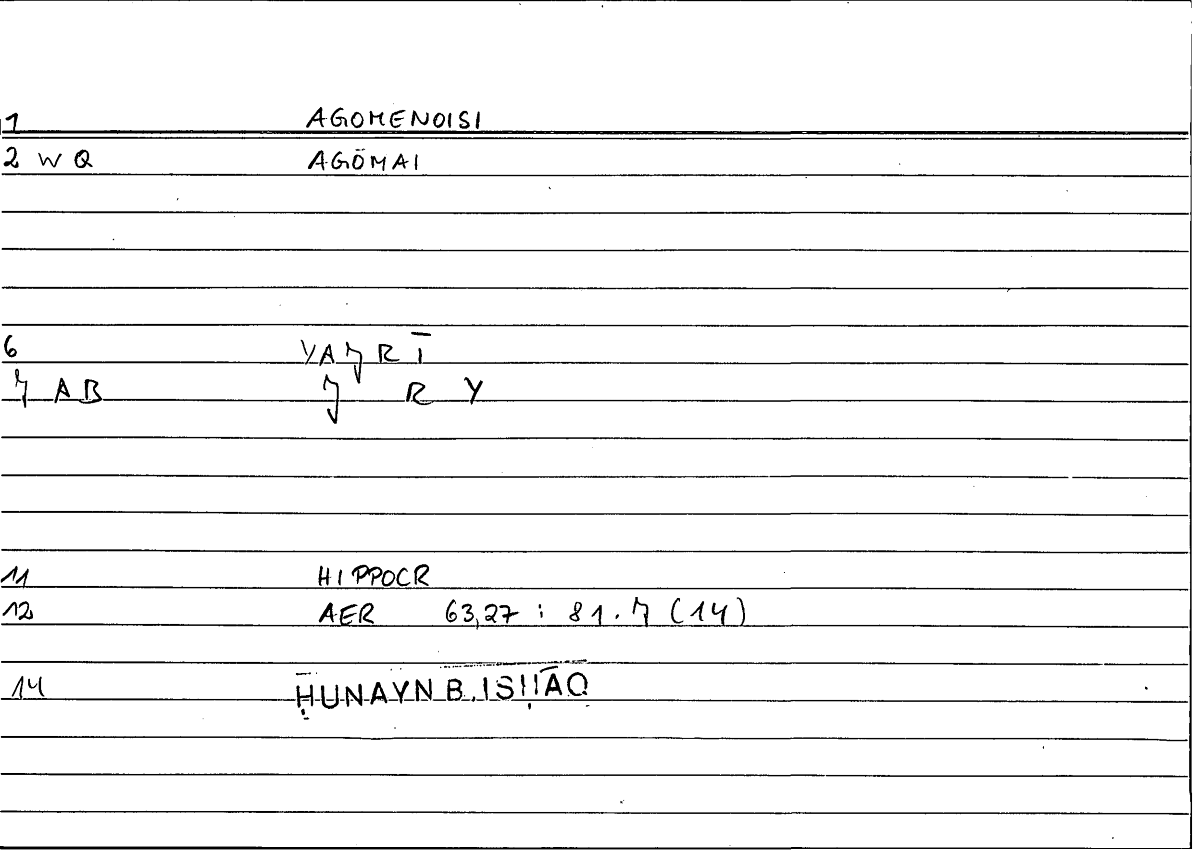 1 AGOMENOISI
2 W Q AGŌMAI
6 YAJRĪ
7 AB J R Y
11 HIPPOCR
12 AER 63,27 : 81.7 (14)
14 ḤUNAYN B. ISḤĀQ